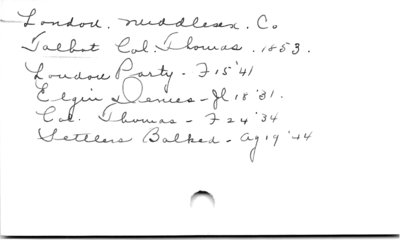 London. Middlesex. Co
Talbot Col. Thomas. 1853.
London Party - F 15 '41
Elgin - Jl 18 '31.
Col. Thomas - F 24 '34
Settlers Balked - Ag 19 '44